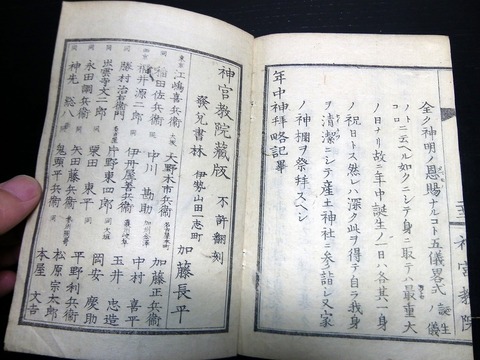 神宮教院
全ク神明ノ恩賜ナルコト五儀畧式誕生ノ儀
ノトコロニ云ヘル如クニシテ身ニ取テハ最重大
ノ日ナリ故ニ年中誕生ノ一日ハ各其一身
ノ祝日トス然レハ深ク此ヲ得テ自ラ我身
ヲ清潔ニシテ産土神社ニ参詣シ又家
ノ神棚ヲ祭拜スヘシ
年中神拜略記畢
神宮教院藏版 不許翻刻
發兌書林 伊勢山田一志町 加藤長平
東京 江嶋喜兵衛 大坂 大野木市兵衛 加藤正兵衛
同 稲田佐兵衛 同 中川勘助 加州金澤 中村喜平
西京 井源二郎 同 伊丹屋善兵衛 玉井忠造
同 勝村治右衛門 片野東四郎 大垣 岡安慶助
同 出雲寺文二郎 同 栗田東平 同 平野利兵衛
同 永田調兵衛 同 矢田藤兵衛 松原宗太郎
同 神先 八 同 鬼頭平兵衛 本屋文吉